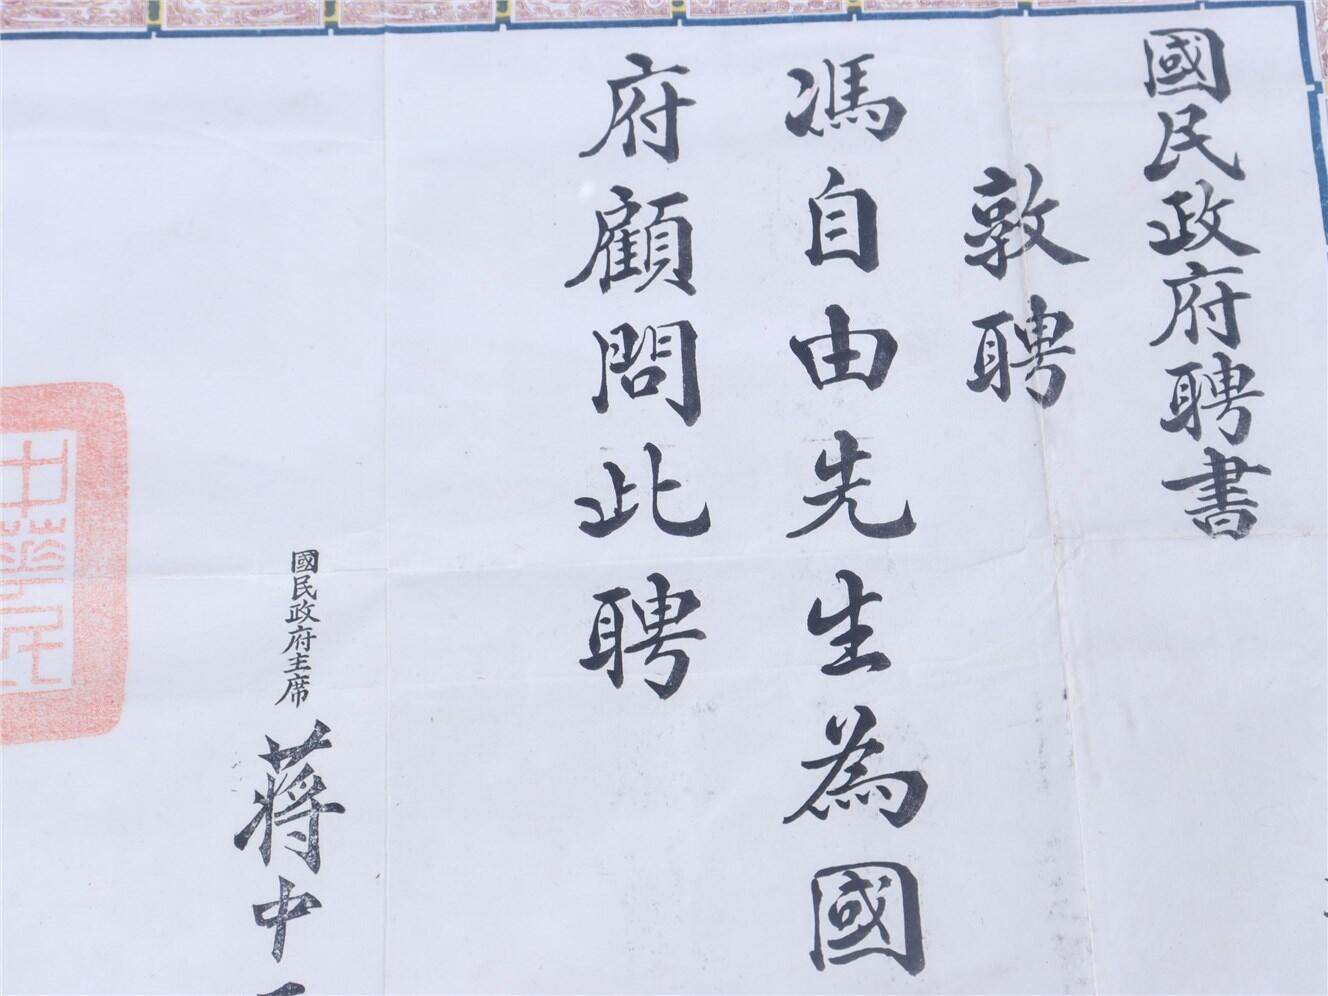 國民政府聘書
敦聘
馮自由先生為國
府顧問此聘
國民政府主席
蔣中
中華民